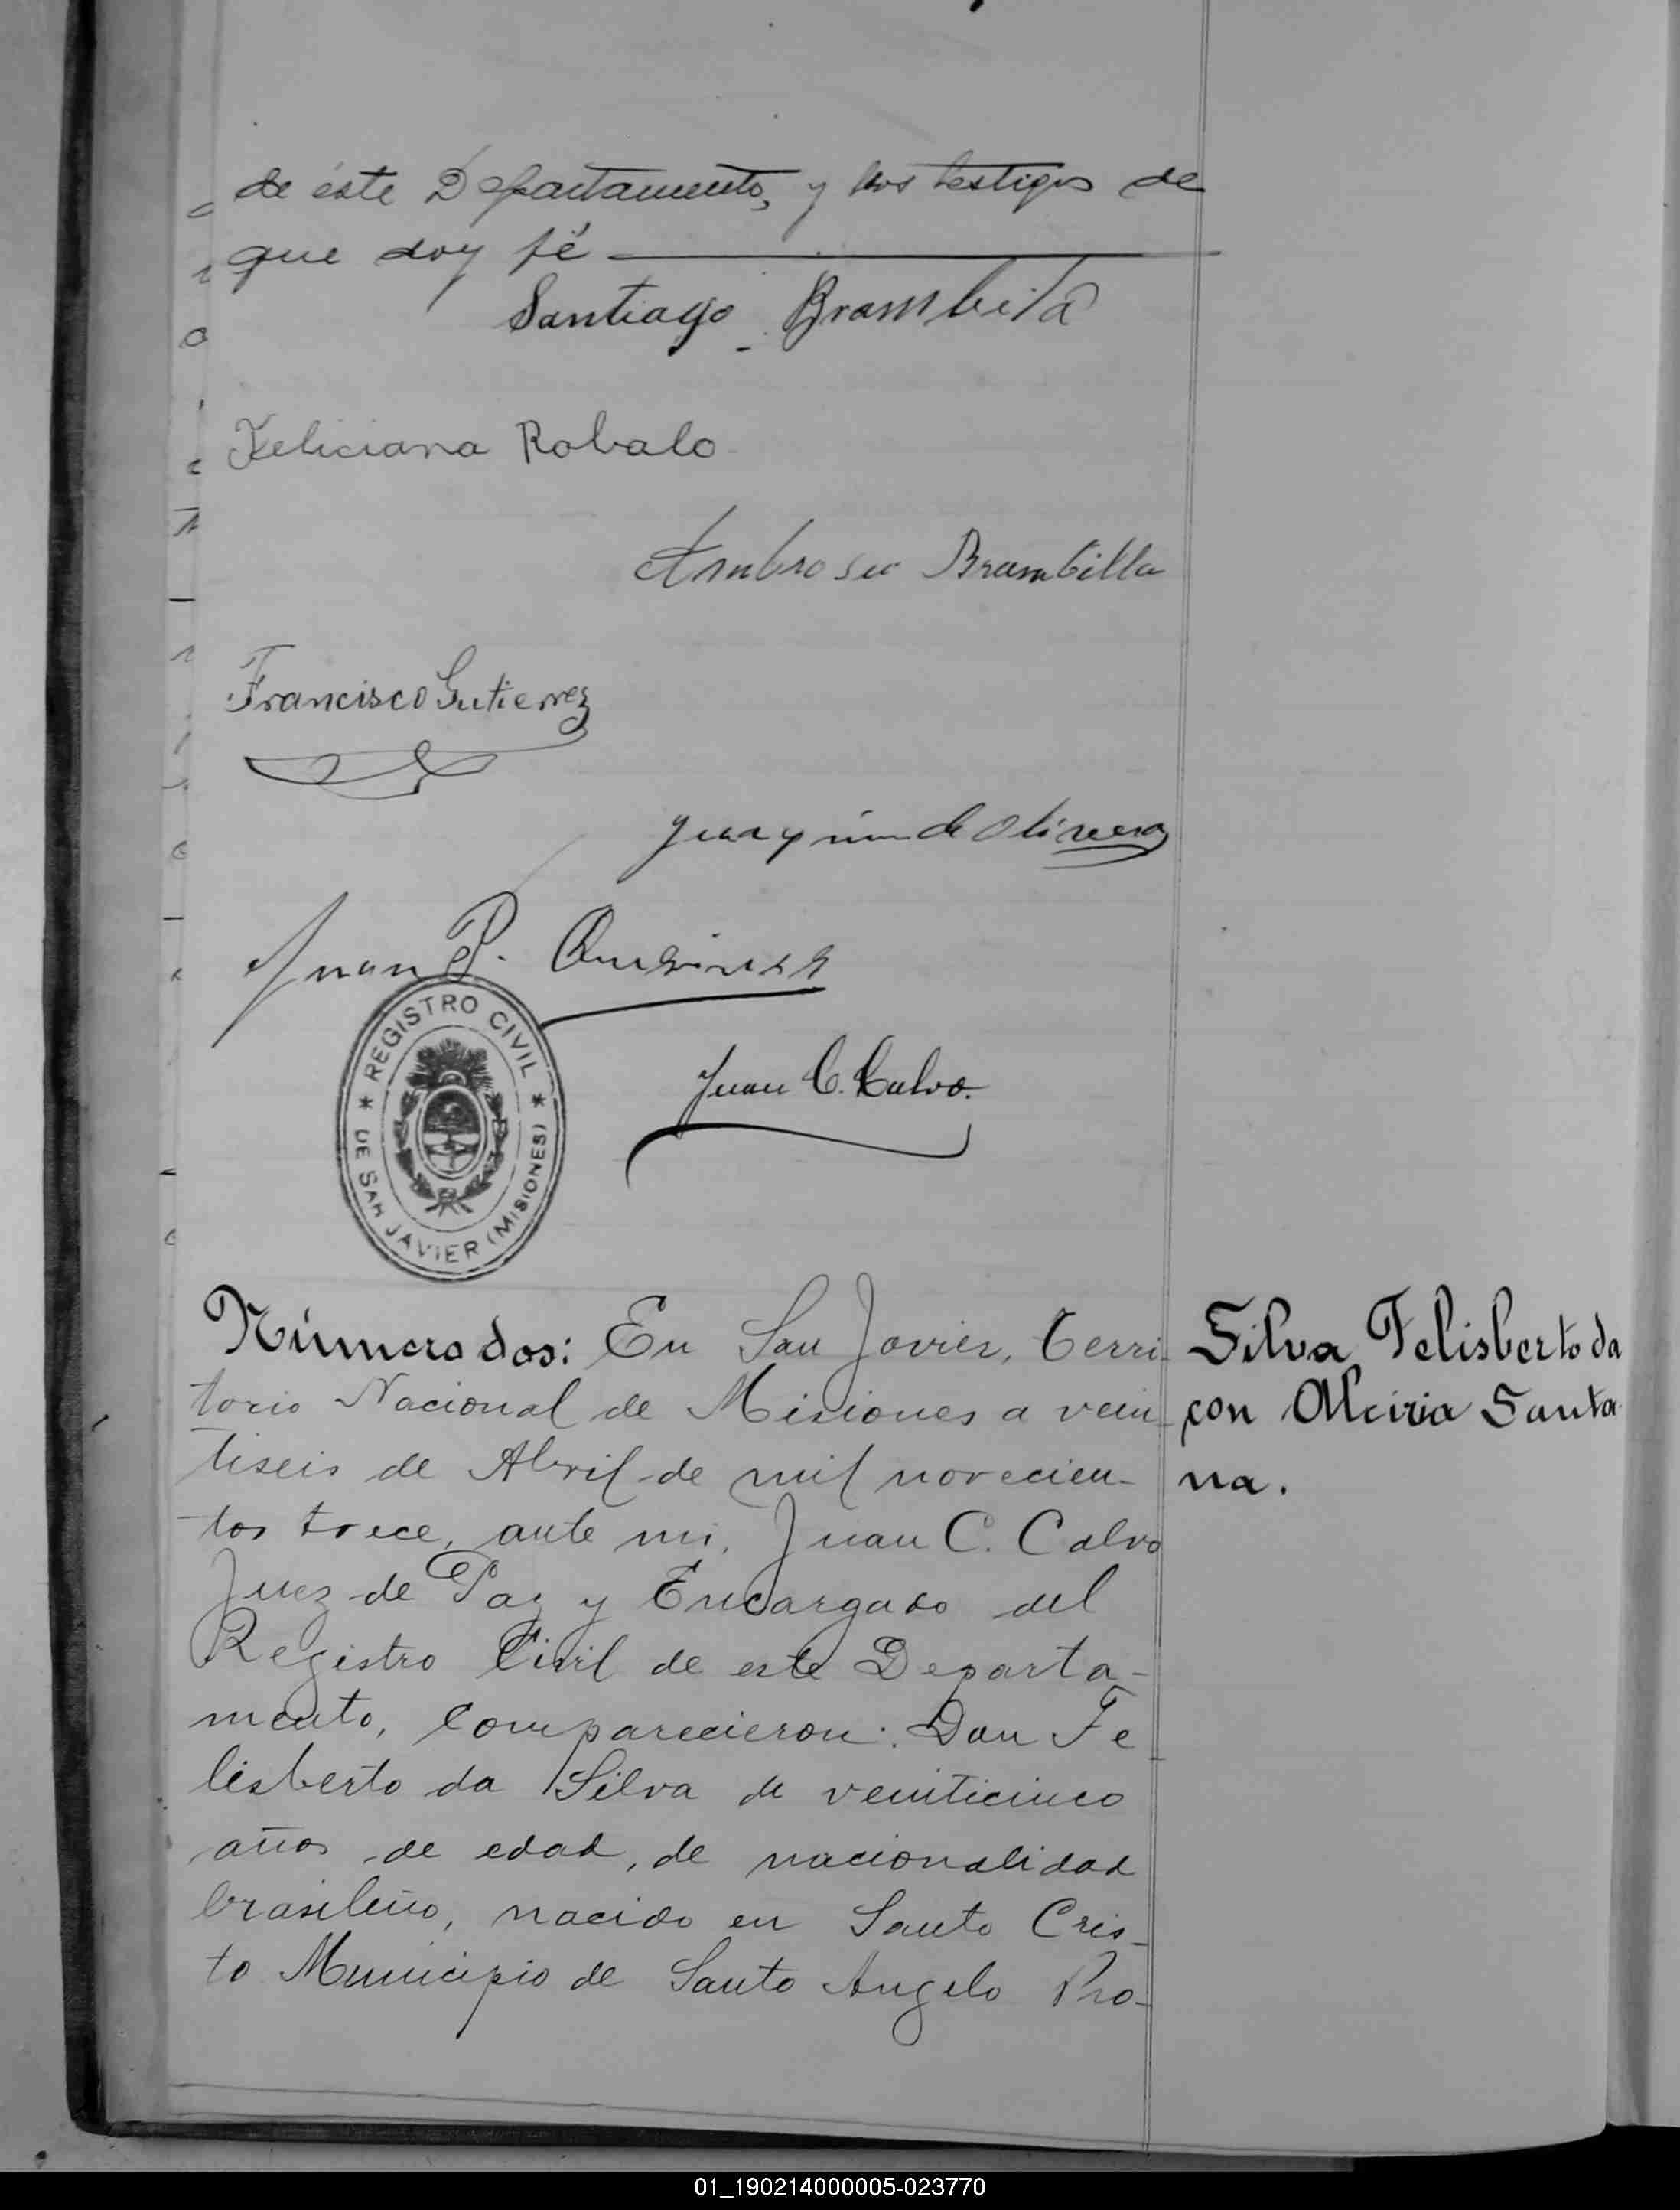 de éste Departamento, y los testigos de
que doy fé
Santiago Brambila
Feliciana Robalo
Ambrosio Brambilla
Francisco Gutierrez
de Oliveera
Juan P.
REGISTRO CIVIL
DE SAN JAVIER (MISIONES)
Juan C. Calvo.
Número dos: En San Javier, Terri-
torio Nacional de Misiones a vein
tiseis de Abril de mil novecien-
tos trece, ante mi, Juan C. Calvo
Juez de Paz y Encargado del
Registro Civil de este Departa-
mento, comparecieron: Don Fe
lisberto da Silva de veinticinco
años de edad, de nacionalidad
brasileño, nacido en Santo Cris-
to Municipio de Santo Angelo Pro-
Silva Felisberto da
con Alciria Santa
na.
01_190214000005-023770